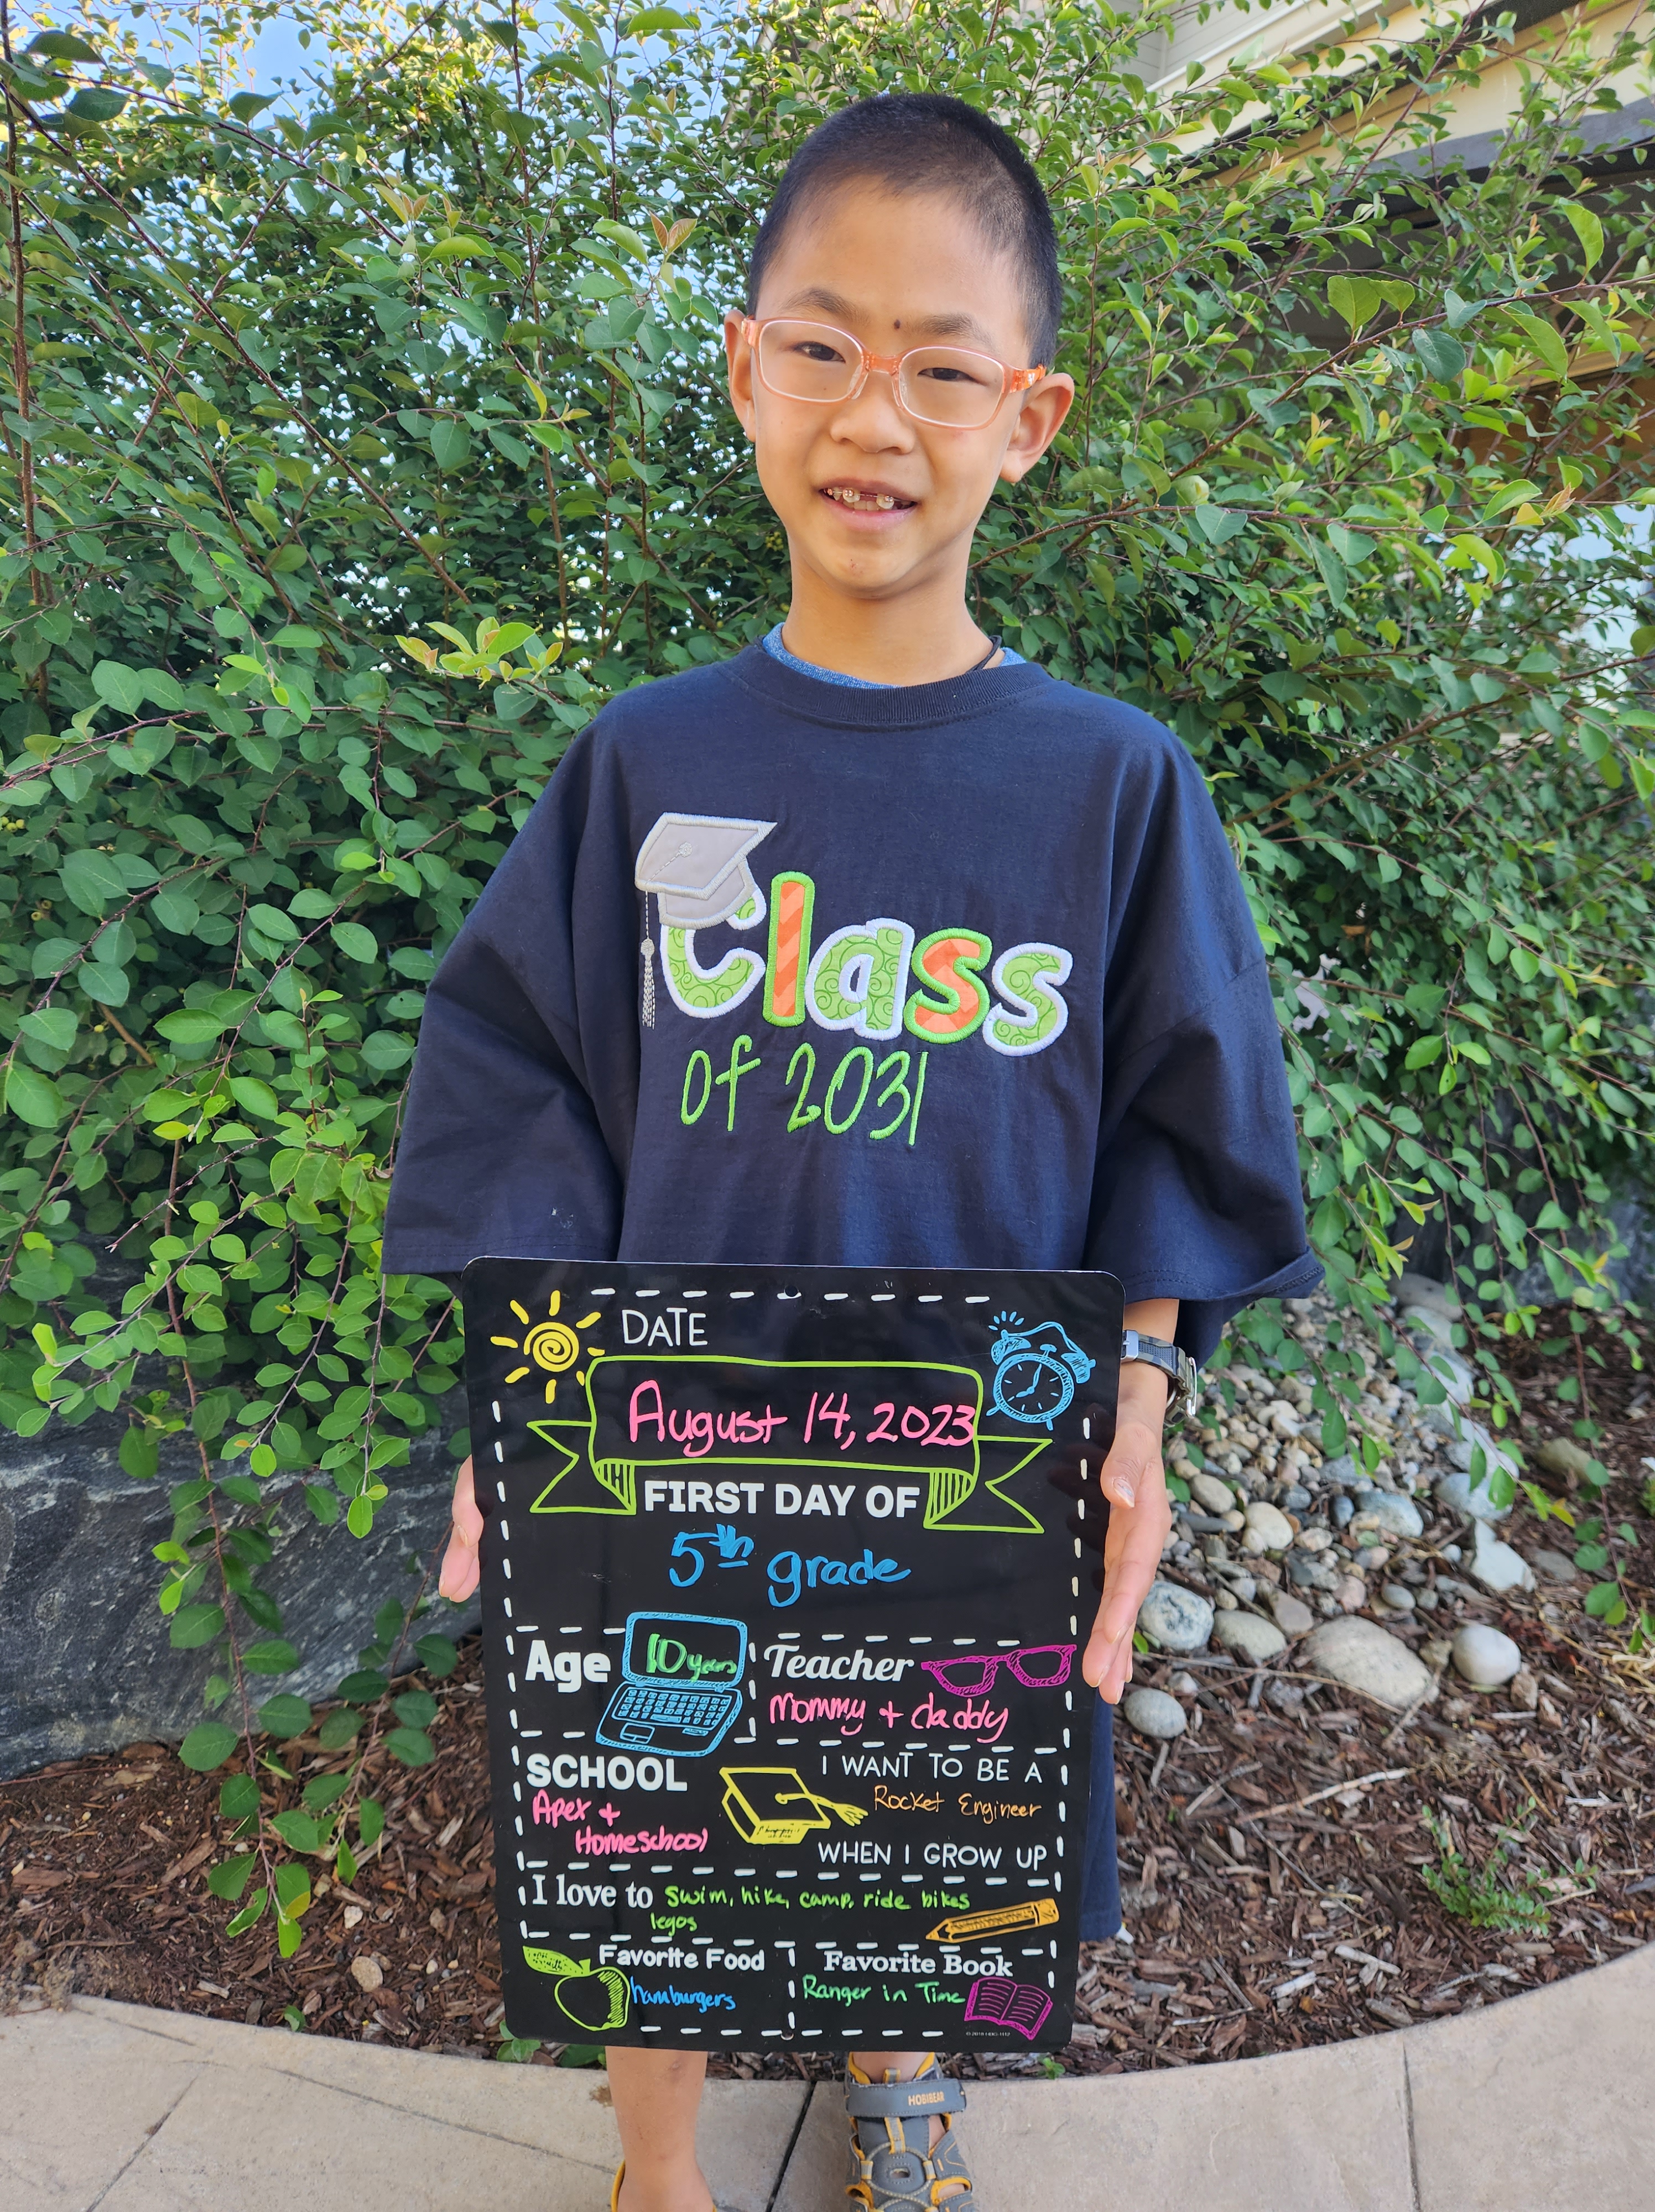 Class
of 2031
DATE
August 14, 2023
FIRST DAY OF
5th grade
Age 10 years
Teacher
Mommy + daddy
SCHOOL
Apex +
Homeschool
I WANT TO BE A
Rocket Engineer
WHEN I GROW UP
I love to swim, hike, camp, ride bikes
legos
Favorite Food
hamburgers
Favorite Book
Ranger in Time
HOBIBEAR